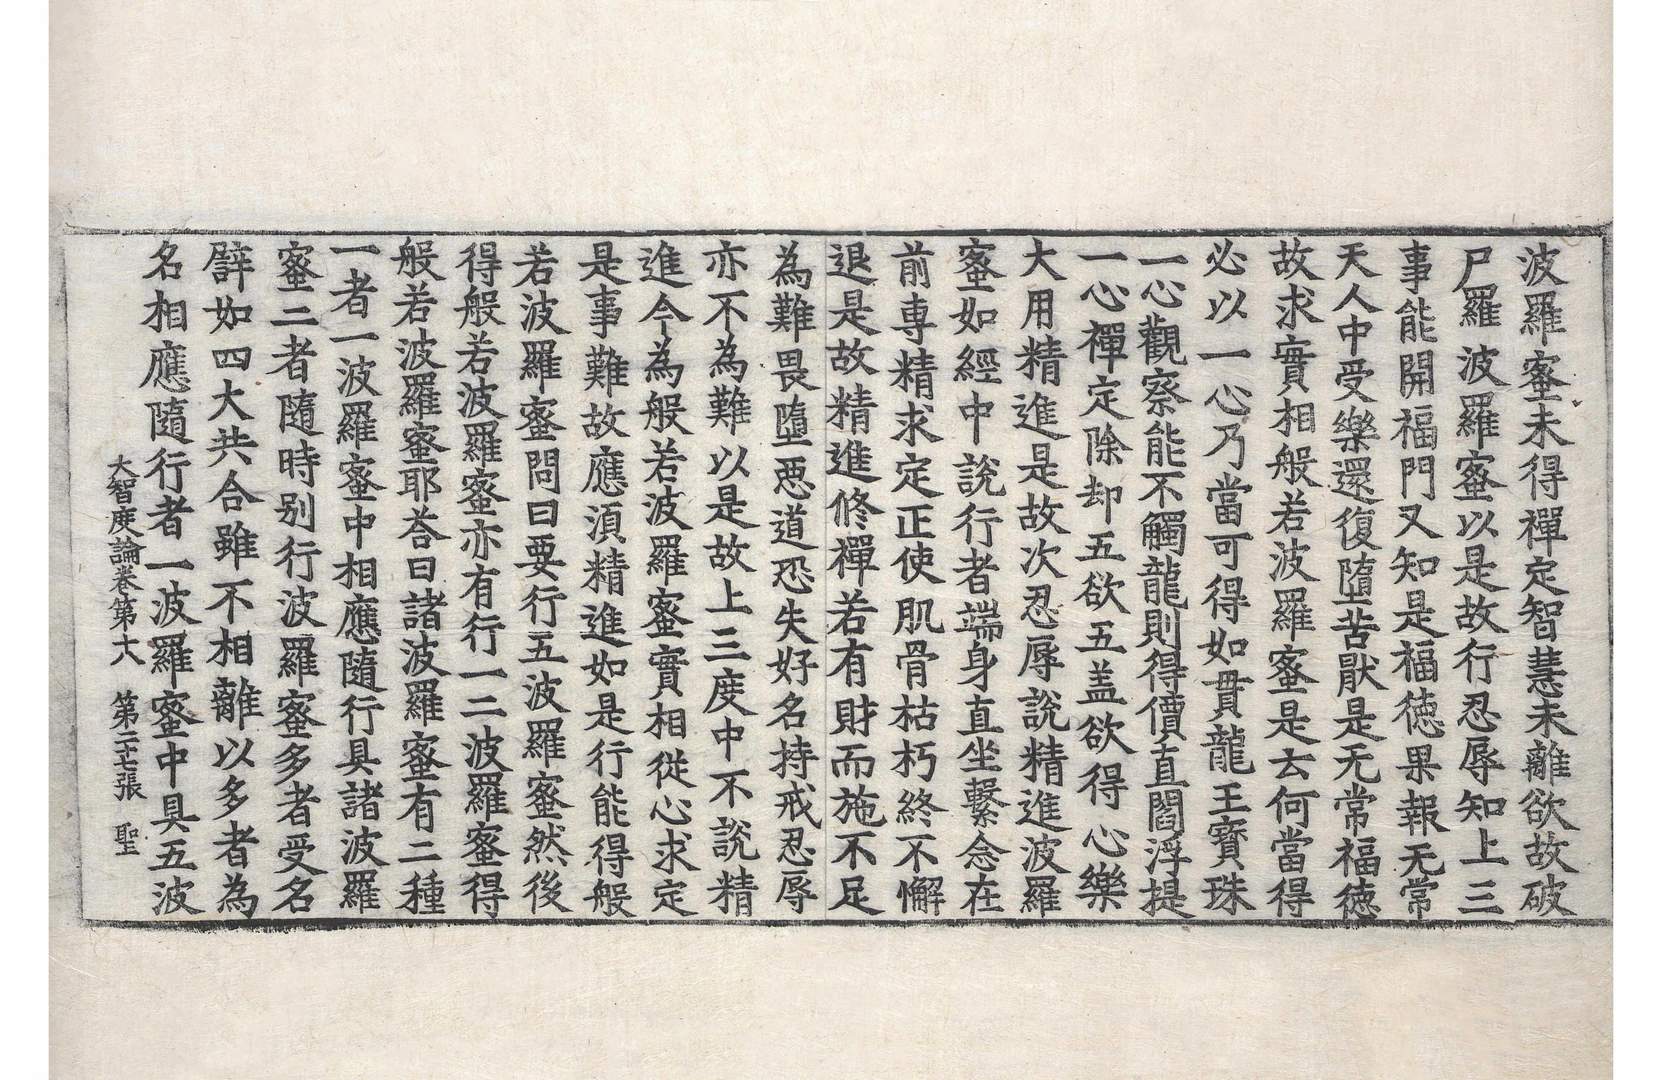 波羅蜜未得禪定智慧未離欲故破
尸羅波羅蜜以是故行忍辱知上三
事能開福門又知是福德果報无常
天人中受樂還復墮苦猒是无常福德
故求實相般若波羅蜜是云何當得
必以一心乃當可得如貫龍王寶珠
一心觀察能不觸龍則得價直閻浮提
一心禪定除却五欲五盖欲得心樂
大用精進是故次忍辱說精進波羅
蜜如經中說行者端身直坐繫念在
前專精求定正使肌骨枯朽終不懈
退是故精進修禪若有財而施不足
為難畏墮惡道恐失好名持戒忍辱
亦不為難以是故上三度中不說精
進今為般若波羅蜜實相從心求定
是事難故應湏精進如是行能得般
若波羅蜜問曰要行五波羅蜜然後
得般若波羅蜜亦有行一二波羅蜜得
般若波羅蜜耶荅曰諸波羅蜜有二種
一者一波羅蜜中相應隨行具諸波羅
蜜二者隨時別行波羅蜜多者受名
譬如四大共合雖不相離以多者為
名相應隨行者一波羅蜜中具五波
大智度論卷第十八 第二十七張 聖